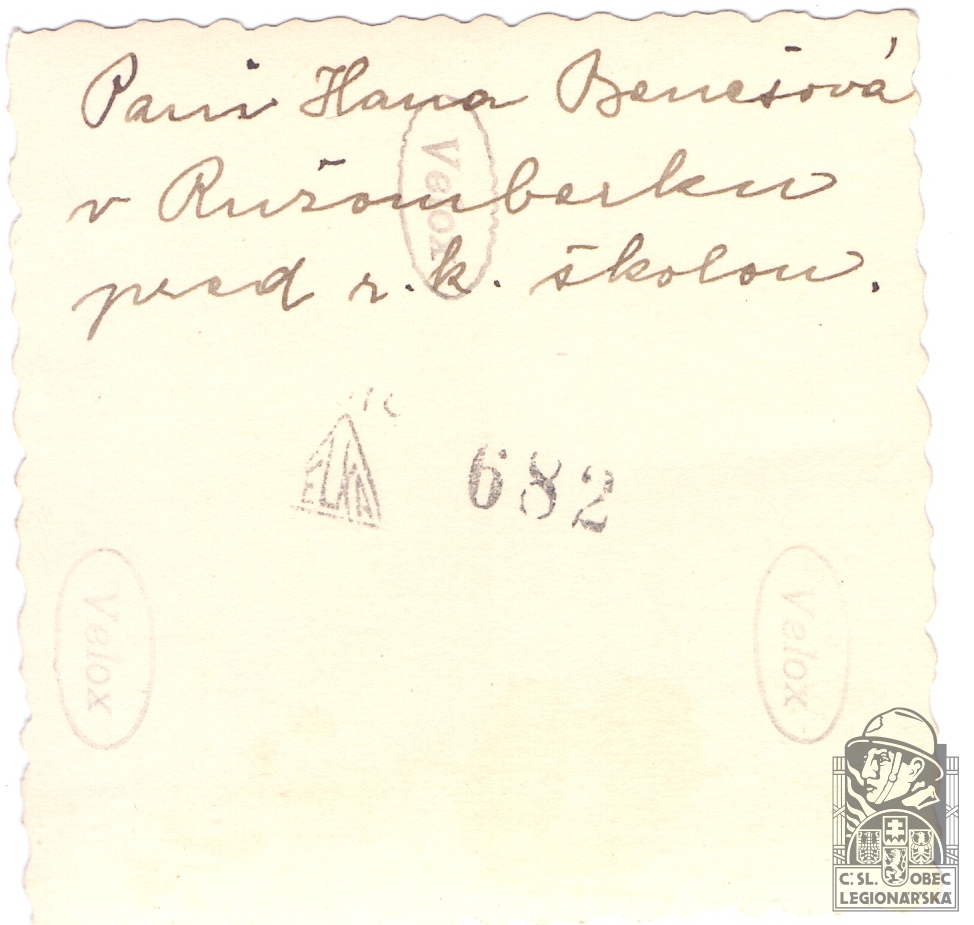 Pani Hana Benešová
v Ružomberku
pred r. k. školou.
Velox
ELKA
682
Velox
Velox
Č. SL. OBEC
LEGIONÁŘSKÁ